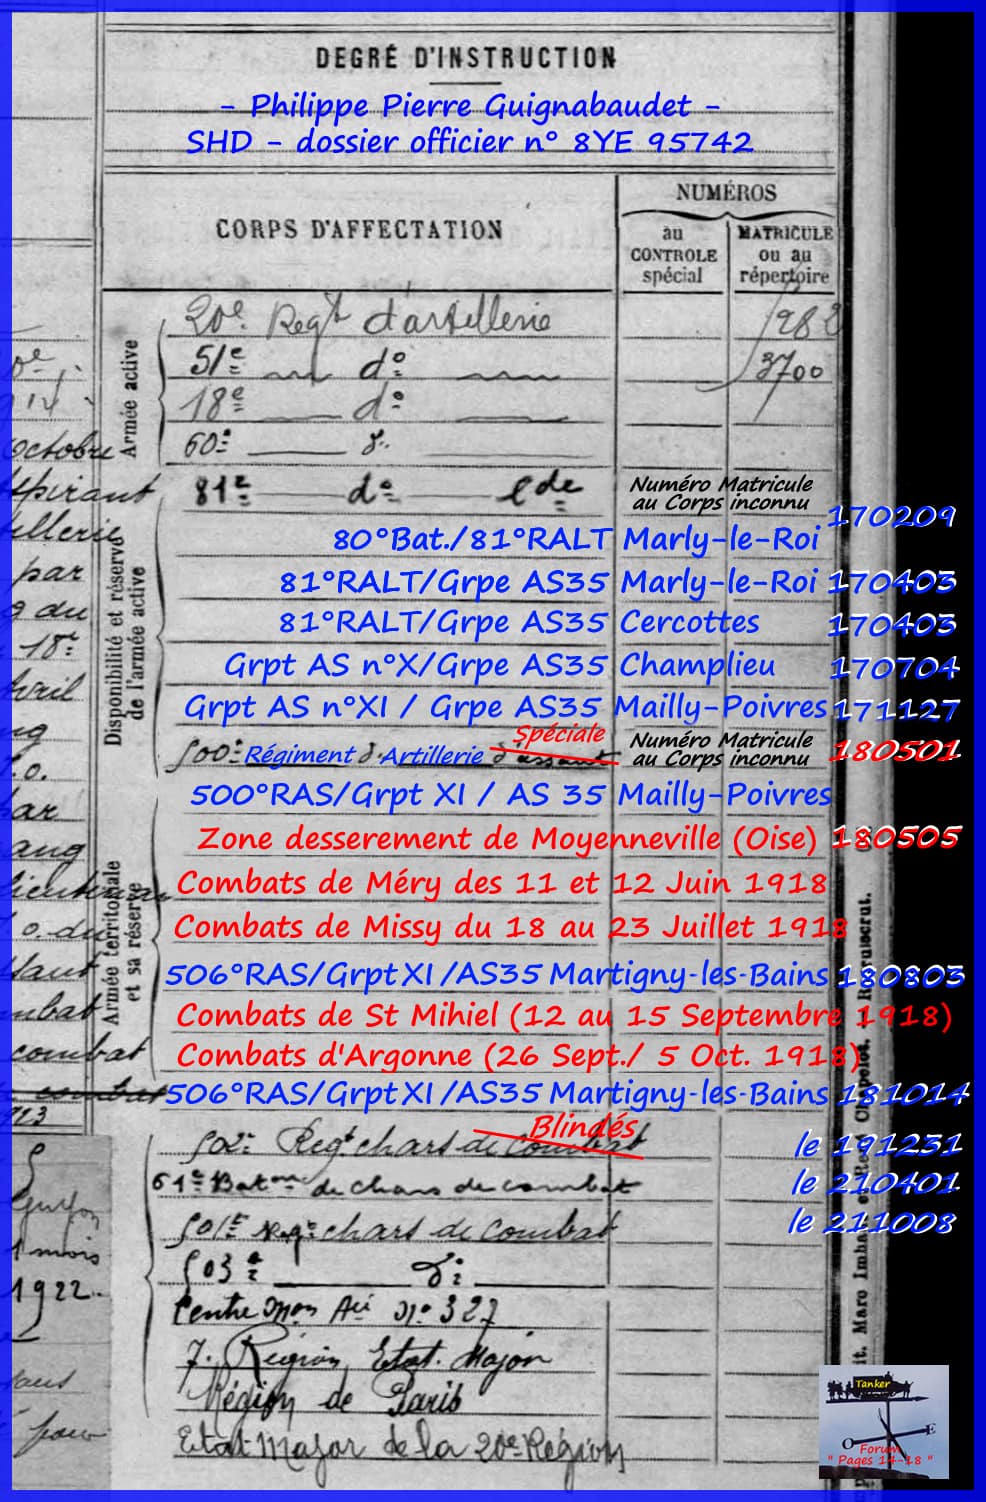 DEGRÉ D'INSTRUCTION
- Philippe Pierre Guignabaudet -
SHD - dossier officier n° 8YE 95742
NUMÉROS
CORPS D'AFFECTATION
au CONTROLE spécial
MATRICULE ou au répertoire
Armée active
20e Regt d'artillerie 1982
51e d° 3700
18e d°
60e d°
octobre
aspirant
81e d° lde
Numéro Matricule
au Corps inconnu
170209
Disponibilité et réserve
de l'armée active
80°Bat./81°RALT Marly-le-Roi
par
81°RALT/Grpe AS35 Marly-le-Roi 170403
du
81°RALT/Grpe AS35 Cercottes 170403
18e
Grpt AS n°X/Grpe AS35 Champlieu 170704
avril
Grpt AS n°XI / Grpe AS35 Mailly-Poivres 171127
Spéciale
500e Régiment d'Artillerie d'assaut
Numéro Matricule
au Corps inconnu
180501
500°RAS/Grpt XI / AS 35 Mailly-Poivres
par
Zone desserement de Moyenneville (Oise) 180505
rang
Armée territoriale
et sa réserve
Combats de Méry des 11 et 12 Juin 1918
lieutenant
Combats de Missy du 18 au 23 Juillet 1918
506°RAS/Grpt XI /AS35 Martigny-les-Bains 180803
Combats de St Mihiel (12 au 15 Septembre 1918)
Combats d'Argonne (26 Sept./ 5 Oct. 1918)
combat
506°RAS/Grpt XI /AS35 Martigny-les-Bains 181014
combat
Blindés
502e Regt chars de combat le 191231
61e Baton de chars de combat le 210401
501e Regt chars de combat le 211008
mois
503e d°
1922
Centre mon Aie N° 327
7e Région, Etat-Major
Région de Paris
Etat Major de la 20e Région
Tanker
O E
Forum
" Pages 14-18 "